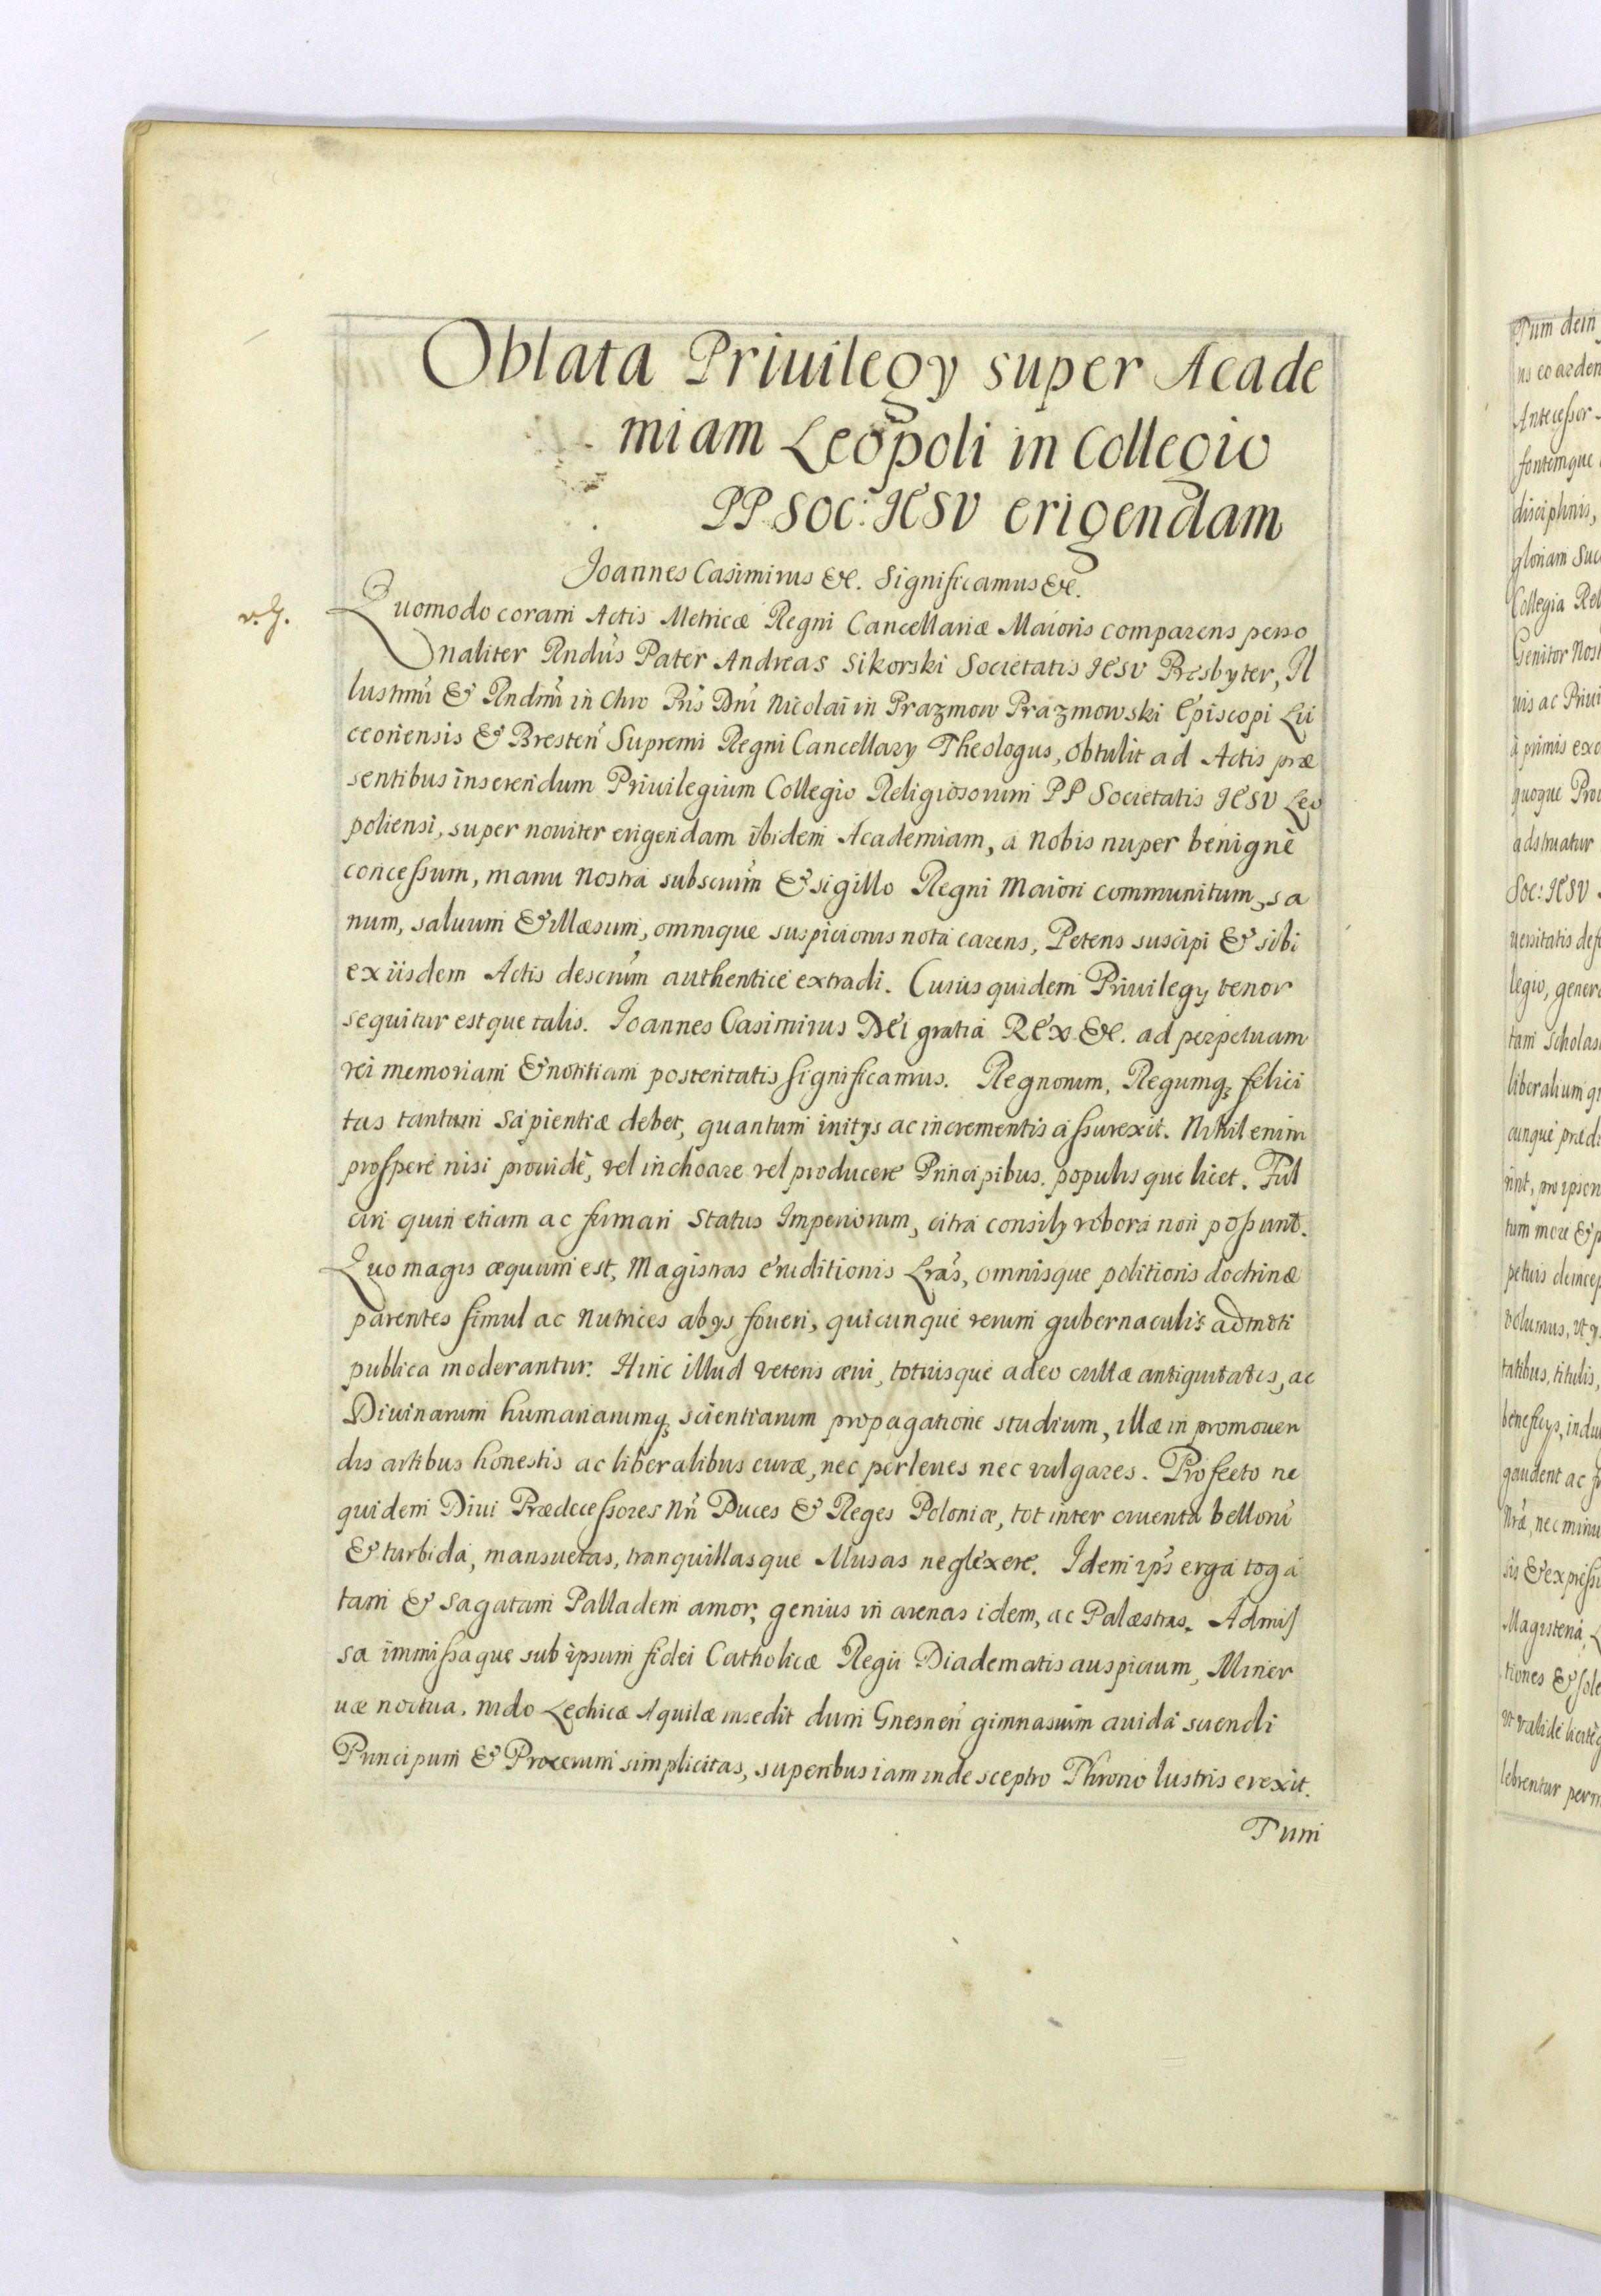 Oblata Priuilegÿ super Acade
miam Leopoli in Collegio
PP Soc: IESV erigendam
Joannes Casimirus &c. Significamus &c.
Quomodo coram Actis Metricæ Regni Cancellariæ Maioris comparens perso
naliter Rndus Pater Andreas Sikorski Societatis IESV Presbyter, Il
lustmi & Rndmi in Chro Pris Dni Nicolai in Prazmow Prazmowski Episcopi Lu
ceoriensis & Bresten Supremi Regni Cancellarÿ Theologus, obtulit ad Actis præ
sentibus inserendum Priuilegium Collegio Religiosorum PP Societatis IESV Leo
poliensi, super nouiter erigendam ibidem Academiam, à Nobis nuper benignè
concessum, manu Nostra subscrium & sigillo Regni Maiori communitum, sa
num, saluum & illæsum, omnique suspicionis nota carens, Petens suscipi & sibi
ex iisdem Actis descrium authenticè extradi. Cuius quidem Priuilegÿ tenor
sequitur estque talis. Joannes Casimirus DEI gratia REX &c. ad perpetuam
rei memoriam & notitiam posteritatis significamus. Regnorum, Regumq; felici
tas tantum sapientiæ debet, quantum initÿs ac incrementis assurexit. Nihil enim
prosperè nisi prouidè, vel inchoare vel producere Principibus populisque licet. Ful
ciri quin etiam ac firmari Status Imperiorum, citra consilÿ robora non possunt.
Quo magis æquum est, Magistras eruditionis Lras, omnisque politioris doctrinæ
parentes simul ac Nutrices abÿs foueri, quicunque rerum gubernaculis admoti
publica moderantur. Hinc illud veteris æui, totiusque adeo cultæ antiquitatis, ac
Diuinarum humanarumq; scientiarum propagatione studium, illæ in promouen
dis artibus honestis ac liberalibus curæ, nec perleues nec vulgares. Profecto ne
quidem Diui Prædecessores Nri Duces & Reges Poloniæ, tot inter cruenta belloru
& turbida, mansuetas, tranquillasque Musas neglexere. Idem ips erga toga
tam & sagatam Palladem amor, genius in arenas idem, ac Palæstras. Admis
sa immissaque sub ipsum fidei Catholicæ Regii Diadematis auspicium, Miner
uæ noctua, nido Lechicæ Aquilæ insedit dum Gnesnen gimnasium auida sciendi
Principum & Procerum simplicitas, superibus iam inde sceptro Throno lustris erexit.
Tum